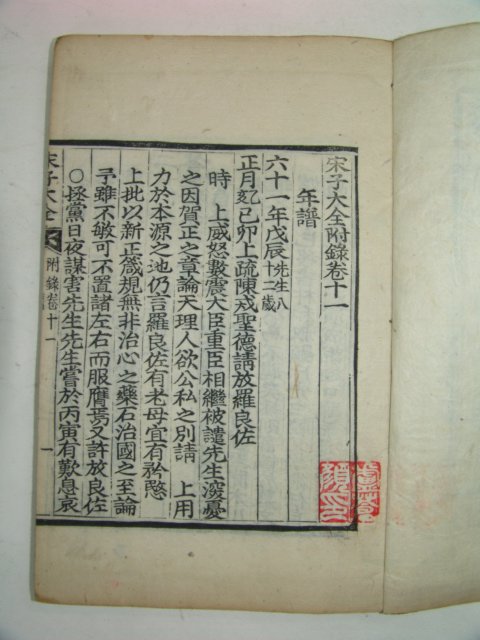 宋子大全附錄卷十一
年譜
六十一年戊辰先生八十二歲
正月乞巳卯上疏陳戒聖德請放羅良佐
時 上威怒數震大臣重臣相繼被譴先生深憂
之因賀正之章論天理人欲公私之別請 上用
力於本源之地仍言羅良佐有老母宜有矜愍
上批以新正箴規無非治心之藥石治國之至論
予雖不敏可不置諸左右而服膺焉又許放良佐
○拯黨日夜謀害先生先生嘗於丙寅有歎息哀
宋子大全 附錄卷十一 一